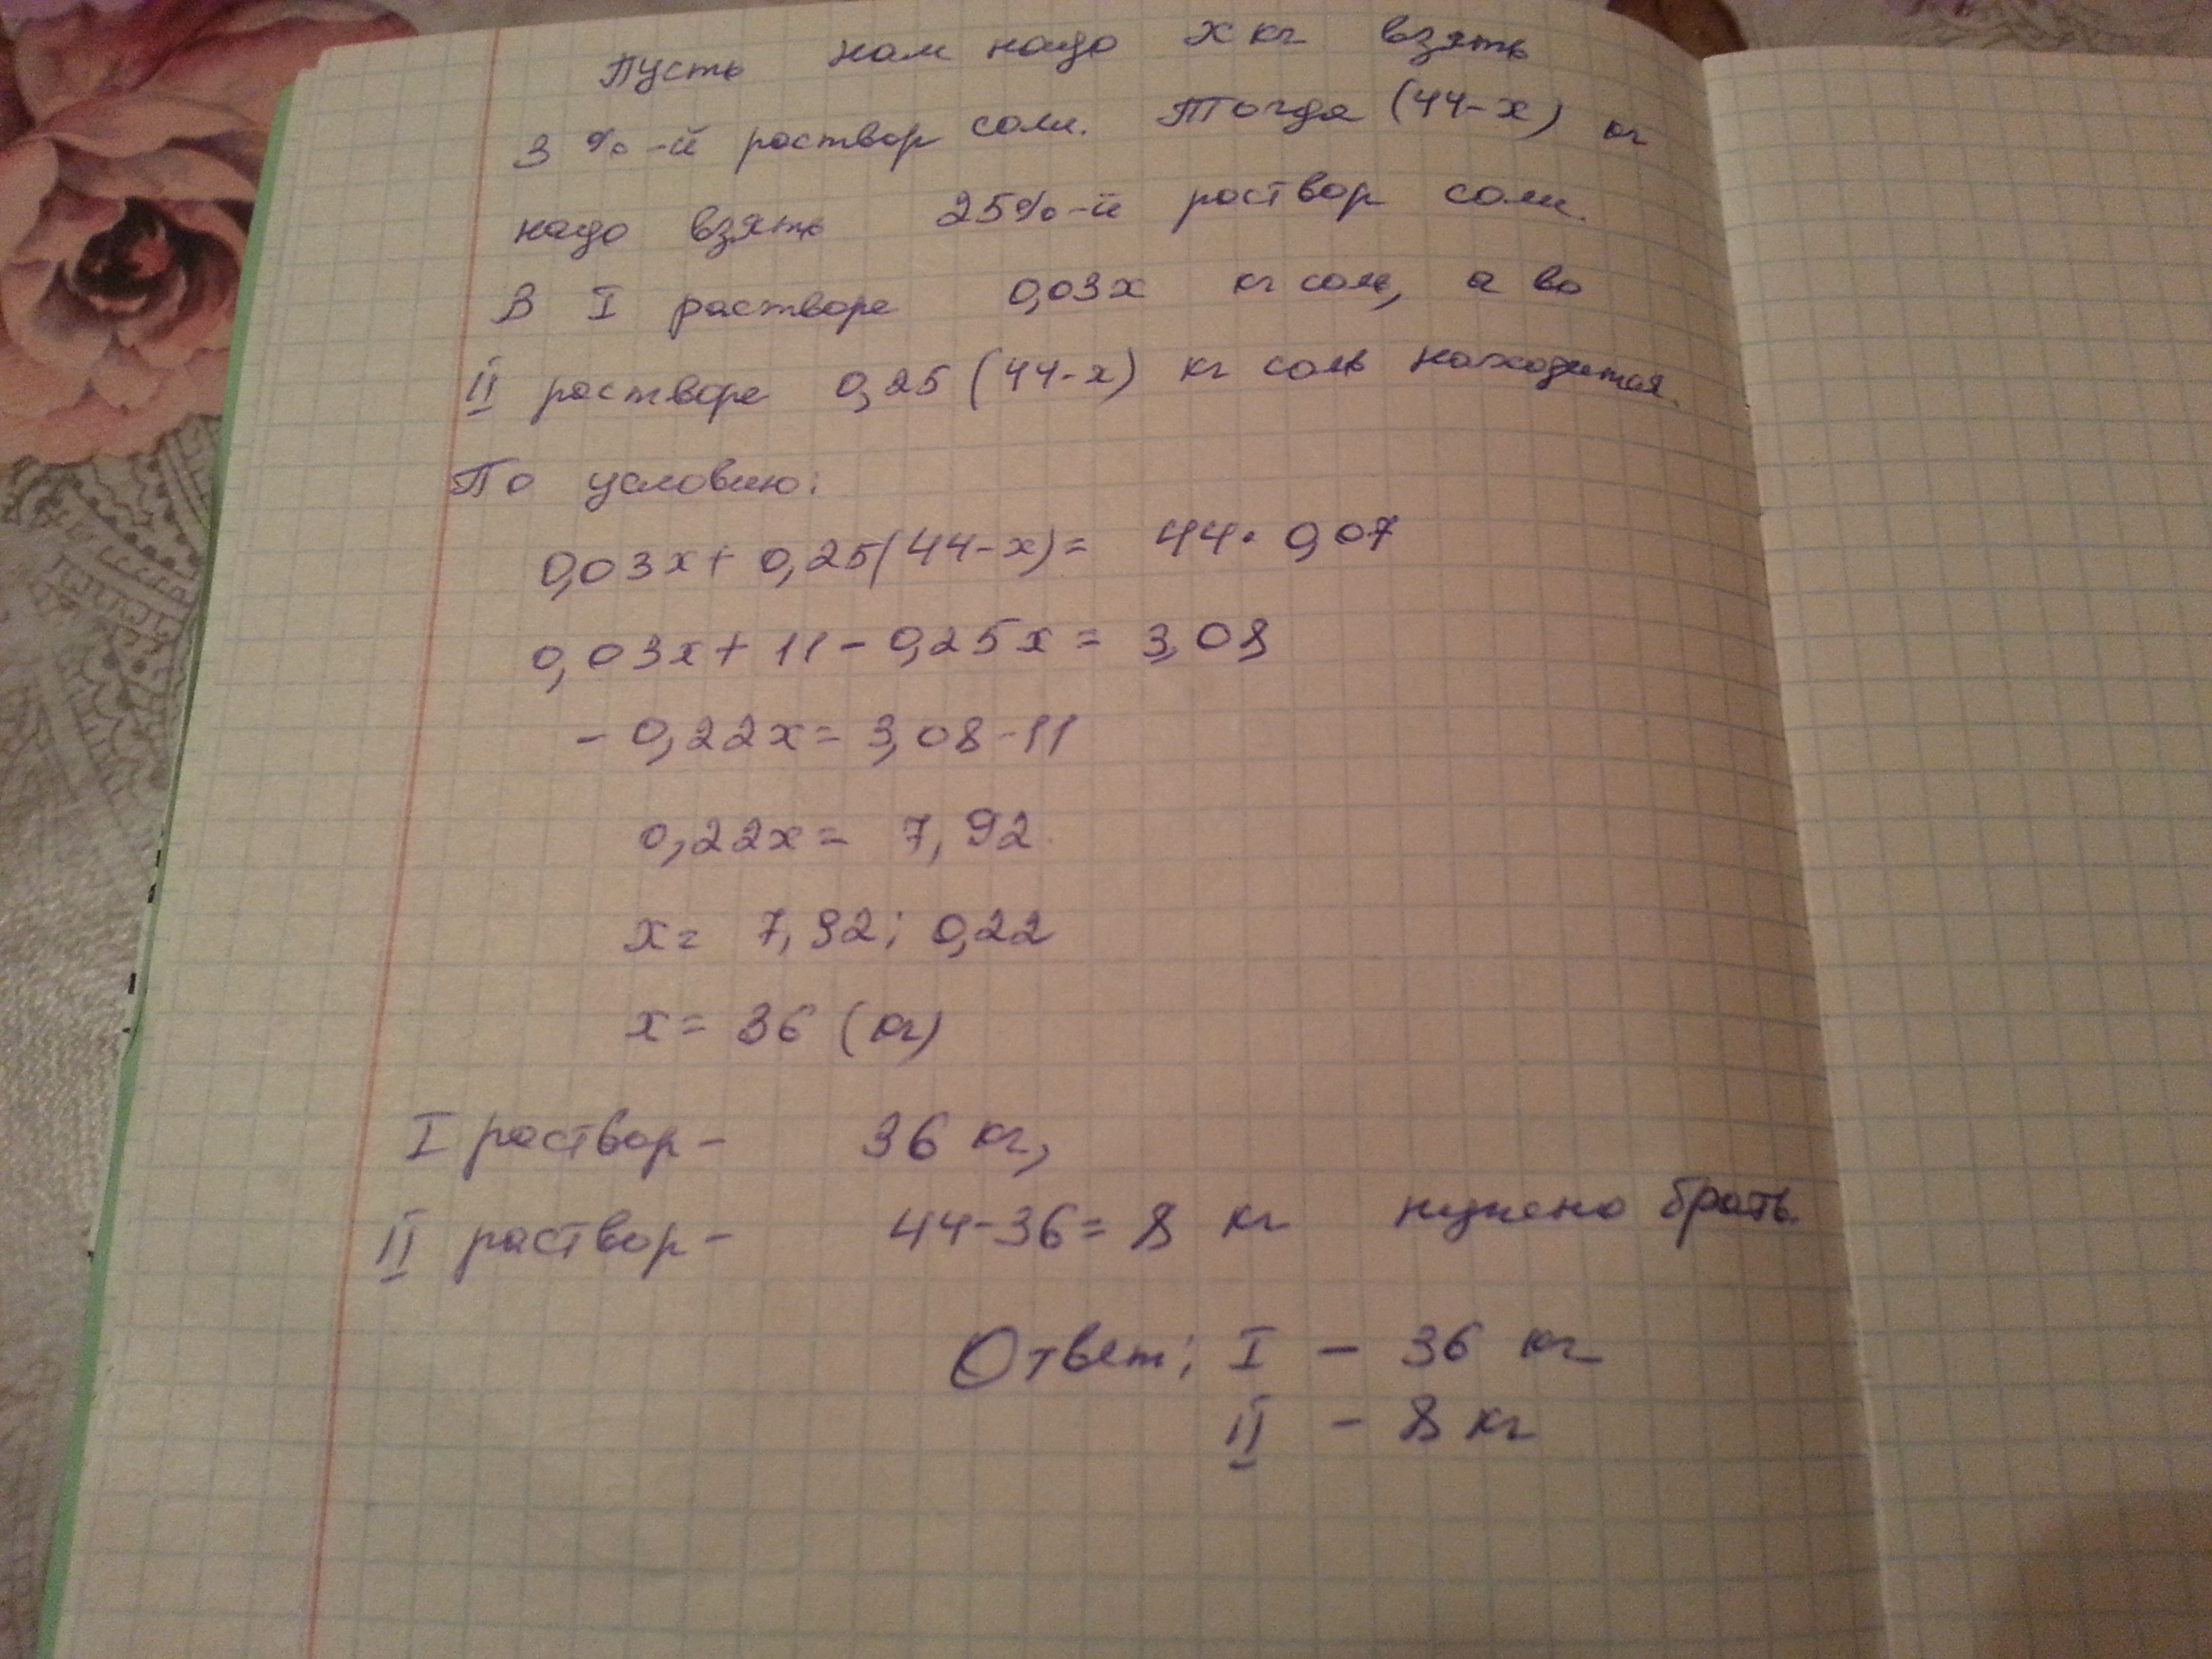 Пусть нам надо х кг взять
3 %-й раствор соли. Тогда (44-х) кг
надо взять 25%-й раствор соли.
В I растворе 0,03х кг соль, а во
II растворе 0,25 (44-х) кг соль находится.
По условию:
0,03х + 0,25(44-х) = 44 · 0,07
0,03х + 11 - 0,25х = 3,08
- 0,22х = 3,08 - 11
0,22х = 7,92
х = 7,92 : 0,22
х = 36 (кг)
I раствор - 36 кг,
II раствор - 44-36 = 8 кг нужено брать.
Ответ: I – 36 кг
II – 8 кг